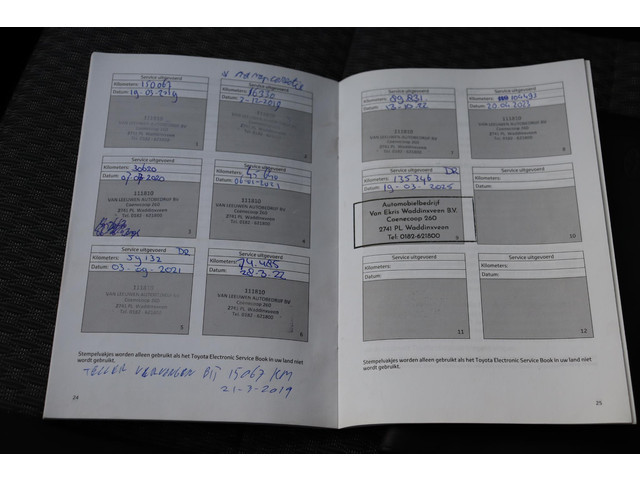 Service uitgevoerd
Kilometers: 15067
Datum: 19-03-2019
111810
VAN LEEUWEN AUTOBEDRIJF BV
Coenecoop 260
2741 PL Waddinxveen
Tel. 0182 - 621800
1
Kilometers: 16330
Datum: 2-12-2019
2
Service uitgevoerd
Kilometers: 30620
Datum: 07-07-2020
111810
VAN LEEUWEN AUTOBEDRIJF BV
Coenecoop 260
2741 PL Waddinxveen
Tel. 0182 - 621800
3
Service uitgevoerd
Kilometers:
Datum:
111810
VAN LEEUWEN AUTOBEDRIJF BV
Coenecoop 260
2741 PL Waddinxveen
Tel. 0182 - 621800
4
Service uitgevoerd DR
Kilometers: 59132
Datum: 03-09-2021
111810
VAN LEEUWEN AUTOBEDRIJF BV
Coenecoop 260
2741 PL Waddinxveen
Tel. 0182 - 621800
5
Service uitgevoerd
Kilometers: 74.485
Datum: 28-3-22
111810
VAN LEEUWEN AUTOBEDRIJF BV
Coenecoop 260
2741 PL Waddinxveen
Tel. 0182 - 621800
6
Stempelvakjes worden alleen gebruikt als het Toyota Electronic Service Book in uw land niet
wordt gebruikt.
TELLER VERVANGEN BIJ 15067 KM
21-3-2019
24
Service uitgevoerd
Kilometers: 89831
Datum: 13-10-22
111810
VAN LEEUWEN AUTOBEDRIJF BV
Coenecoop 260
2741 PL Waddinxveen
Tel. 0182 - 621800
7
Service uitgevoerd
Kilometers: 104493
Datum: 20-04-2023
111810
VAN LEEUWEN AUTOBEDRIJF BV
Coenecoop 260
2741 PL Waddinxveen
Tel. 0182 - 621800
8
Service uitgevoerd DR
Kilometers: 135.346
Datum: 19-03-2025
Automobielbedrijf
Van Ekris Waddinxveen B.V.
Coenecoop 260
2741 PL Waddinxveen
Tel: 0182-621800
9
Service uitgevoerd
Kilometers:
Datum:
10
Service uitgevoerd
Kilometers:
Datum:
11
Service uitgevoerd
Kilometers:
Datum:
12
Stempelvakjes worden alleen gebruikt als het Toyota Electronic Service Book in uw land niet
wordt gebruikt.
25